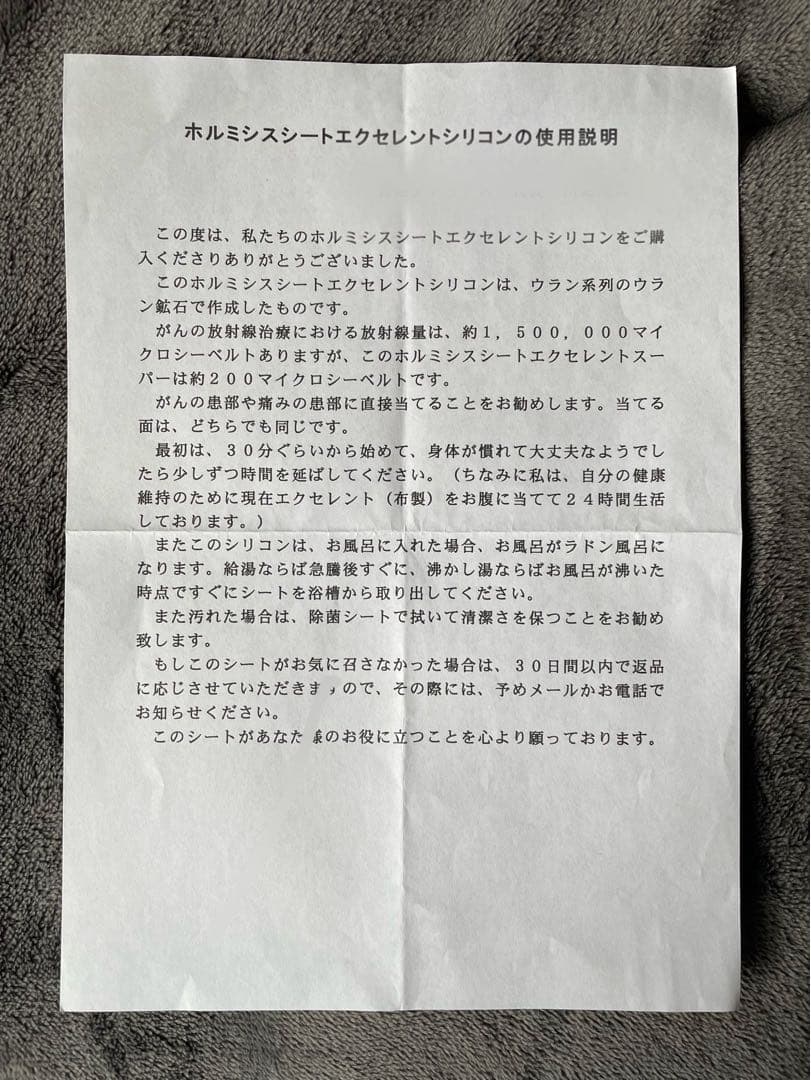 ホルミシスシートエクセレントシリコンの使用説明
この度は、私たちのホルミシスシートエクセレントシリコンをご購
入くださりありがとうございました。
このホルミシスシートエクセレントシリコンは、ウラン系列のウラ
ン鉱石で作成したものです。
がんの放射線治療における放射線量は、約１，５００，０００マイ
クロシーベルトありますが、このホルミシスシートエクセレントスー
パーは約２００マイクロシーベルトです。
がんの患部や痛みの患部に直接当てることをお勧めします。当てる
面は、どちらでも同じです。
最初は、３０分ぐらいから始めて、身体が慣れて大丈夫なようでし
たら少しずつ時間を延ばしてください。（ちなみに私は、自分の健康
維持のために現在エクセレント（布製）をお腹に当てて２４時間生活
しております。）
またこのシリコンは、お風呂に入れた場合、お風呂がラドン風呂に
なります。給湯ならば急騰後すぐに、沸かし湯ならばお風呂が沸いた
時点ですぐにシートを浴槽から取り出してください。
また汚れた場合は、除菌シートで拭いて清潔さを保つことをお勧め
致します。
もしこのシートがお気に召さなかった場合は、３０日間以内で返品
に応じさせていただきますので、その際には、予めメールかお電話で
お知らせください。
このシートがあなた様のお役に立つことを心より願っております。